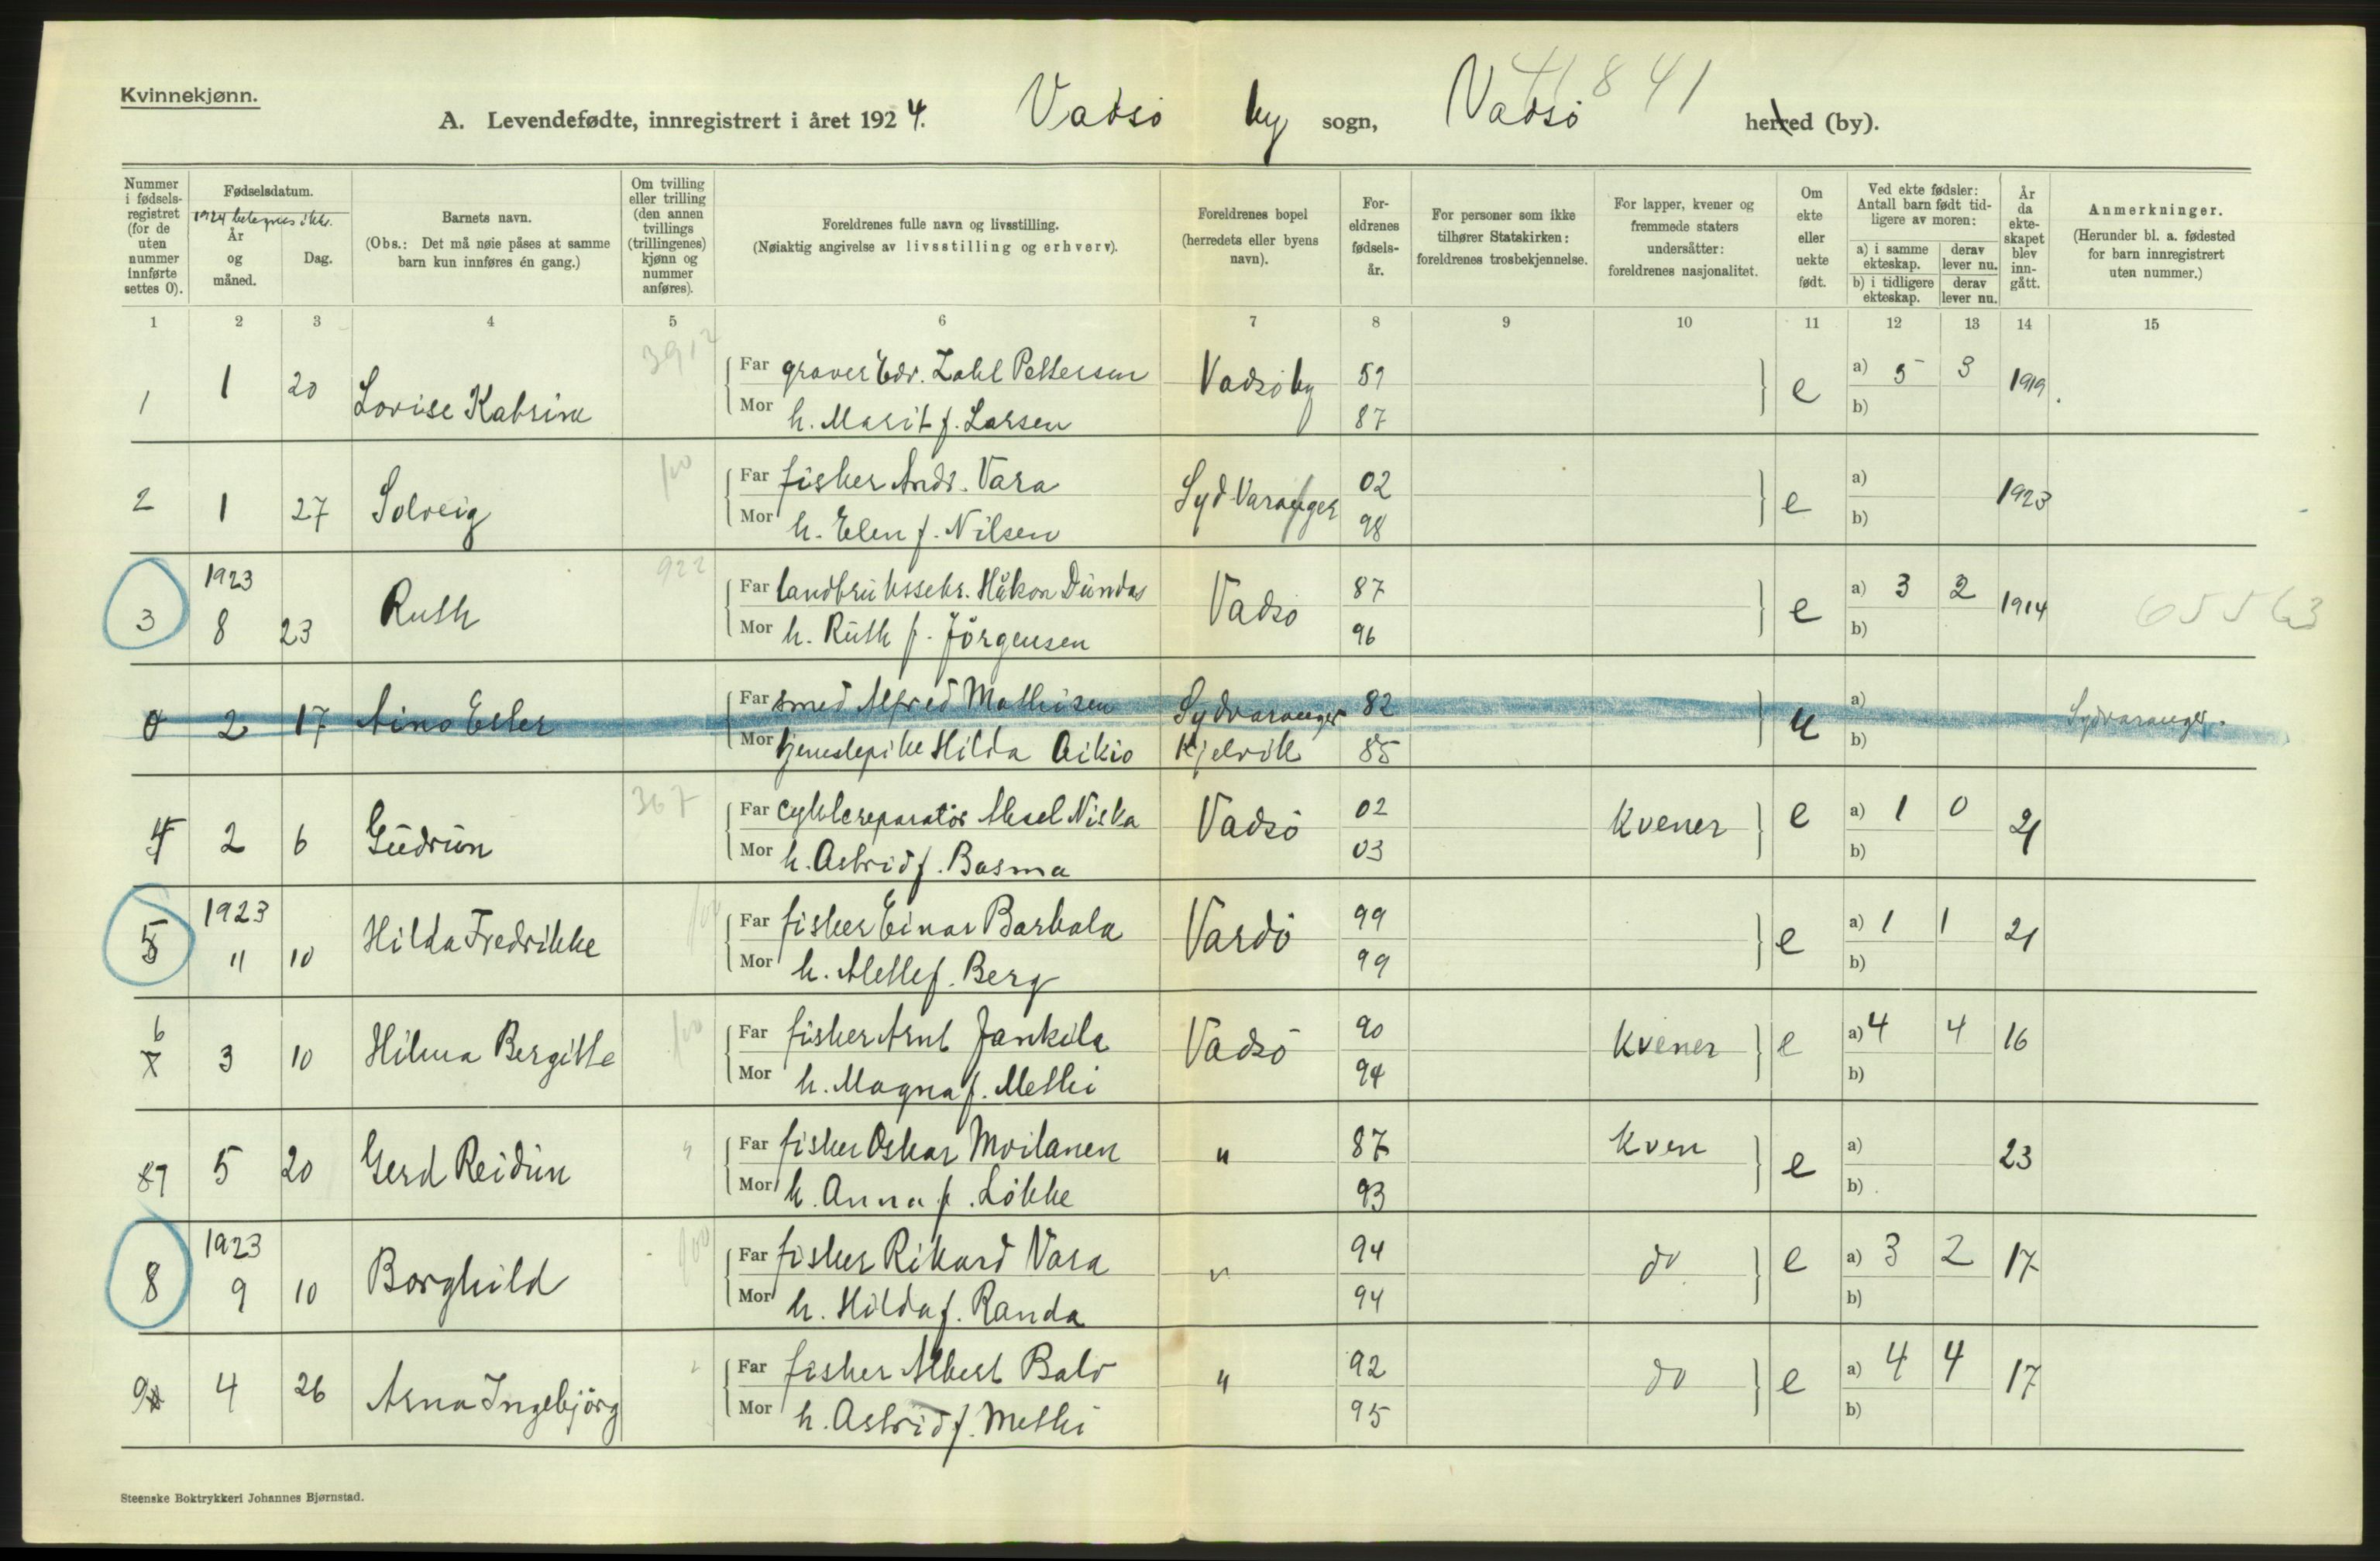 Kvinnekjønn.
41841
A. Levendefødte, innregistrert i året 1924. Vadsø by sogn, Vadsø herred (by).
Nummer i fødsels-registret (for de uten nummer innførte settes 0).
Fødselsdatum.
År og måned.
Dag.
Barnets navn.
(Obs.: Det må nøie påses at samme barn kun innføres én gang.)
Om tvilling eller trilling (den annen tvillings (trillingenes) kjønn og nummer anføres).
Foreldrenes fulle navn og livsstilling.
(Nøiaktig angivelse av livsstilling og erhverv).
Foreldrenes bopel (herredets eller byens navn).
For-eldrenes fødsels-år.
For personer som ikke tilhører Statskirken: foreldrenes trosbekjennelse.
For lapper, kvener og fremmede staters undersåtter: foreldrenes nasjonalitet.
Om ekte eller uekte født.
Ved ekte fødsler: Antall barn født tid-ligere av moren:
a) i samme ekteskap.
derav lever nu.
b) i tidligere ekteskap.
derav lever nu.
År da ekte-skapet blev inn-gått.
Anmerkninger.
(Herunder bl. a. fødested for barn innregistrert uten nummer.)
1 2 3 4 5 6 7 8 9 10 11 12 13 14 15
3912
1 1 20 Lovise Katrine Far graver Edv. Zahl Pettersen Vadsø by 59 e a) 5 3 1919
Mor h. Marit f. Larsen 87 b)
2 1 27 Solveig Far fisker Andr. Vara Syd-Varanger 02 e a) 1923
Mor h. Elen f. Nilsen 98 b)
922
3 1923 8 23 Ruth Far landbrukssekr. Håkon Dundas Vadsø 87 e a) 3 2 1914 65563
Mor h. Ruth f. Jörgensen 96 b)
0 2 17 Aino Ester Far smed Alfred Mathisen Sydvaranger 82 u a) Sydvaranger.
Mor tjenestepike Hilda Aikio Kjelvik 85 b)
367
4 2 6 Gudrun Far cykkelreparatör Aksel Niska Vadsö 02 Kvener e a) 1 0 21
Mor h. Astrid f. Basma 03 b)
5 1923 11 10 Hilda Fredrikke Far fisker Einar Barhala Vardö 99 e a) 1 1 21
Mor h. Mette f. Berg 99 b)
6 3 10 Hilma Bergitte Far fisker Arnt Jankila Vadsö 90 Kvener e a) 4 4 16
Mor h. Magna f. Methi 94 b)
7 5 20 Gerd Reidun Far fisker Oskar Moilanen " 87 Kven e a) 23
Mor h. Anna f. Lökke 93 b)
8 1923 9 10 Borghild Far fisker Rikard Vara " 94 do e a) 3 2 17
Mor h. Hilda f. Randa 94 b)
9 4 26 Arna Ingebjörg Far fisker Albert Balo " 92 do e a) 4 4 17
Mor h. Astrid f. Methi 95 b)
Steenske Boktrykkeri Johannes Bjørnstad.